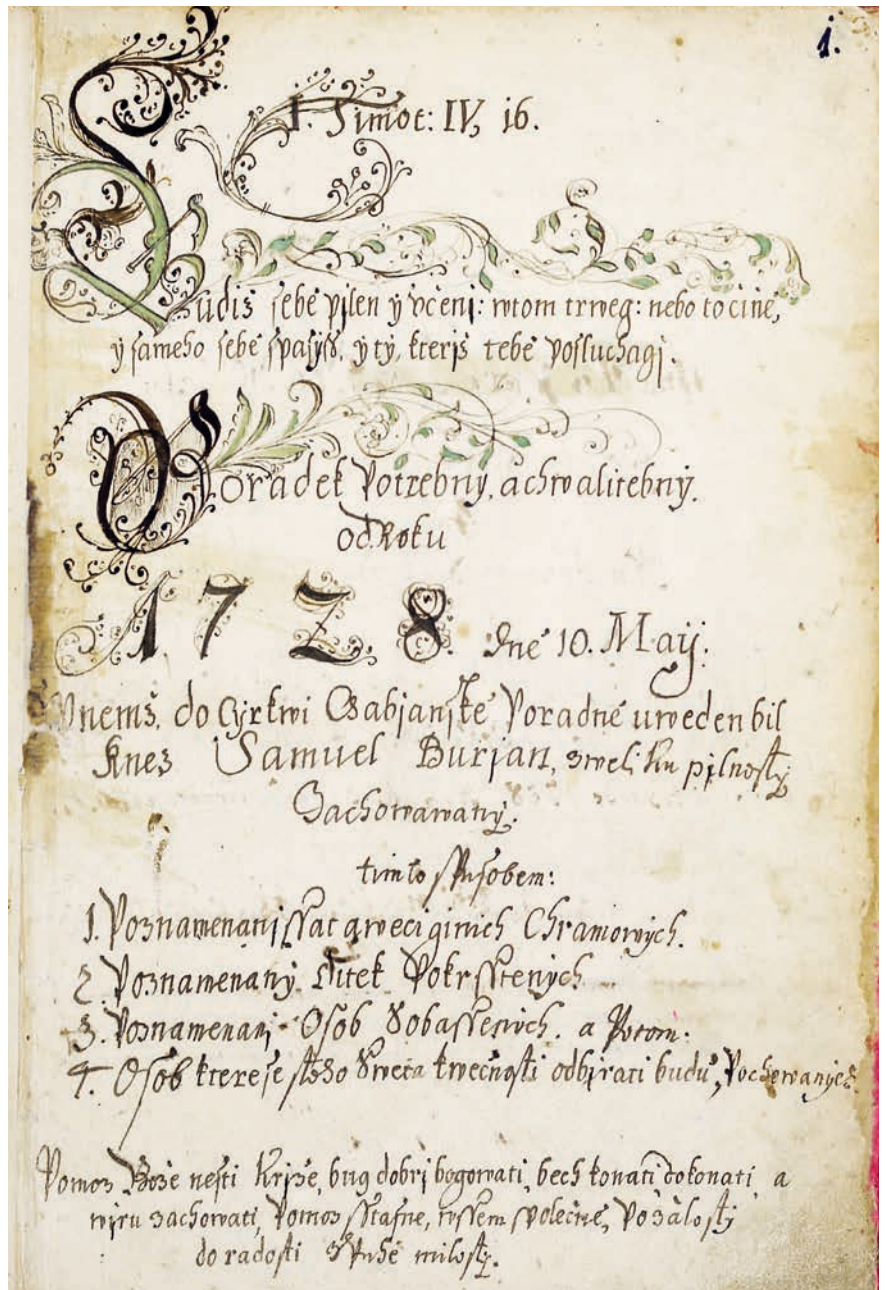 1.
I. Timot: IV, 16.
Budiž sebe pilen y včeni: wtom trweg: nebo to čině,
y sameho sebe spasyß, y ty, kteriž tebe posluchagj.
Poradek Potrebny, a chwalitebny.
od Roku
1728. dne 10. Maij.
Vnemž, do Cyrkwi Čabjanske Poradne uweden bil
Knez Samuel Burjan, z weliku pilnosty
Zachowawany.
timto spusobem:
1. Poznamenanj ssat a weci ginich Chramowych.
2. Poznamenany Ditek Pokrsstenych
3. Poznamenanj Osob Sobassenych. a Potom:
4. Osob ktere se stoho Sweta kwečnosti odbjrati budu, Pochowanych
Pomoz Bože nesti Križe, bug dobrj bogowati, bech konati dokonati a
wjru zachowati, Pomoz sstastne, wssem společne, Po žalosty
do radosti milosty.